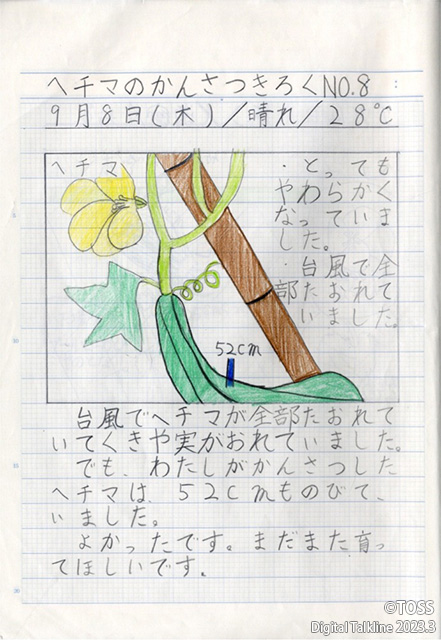 ヘチマのかんさつきろくNO.8
9月8日(木)/晴れ/28℃
ヘチマ
・とっても
やわらかく
なっていま
した。
・台風で全
部たおれて
いました。
52cm
台風でヘチマが全部たおれて
いてくきや実がおれていました。
でも、わたしがかんさつした
ヘチマは、52cmものびて、
いました。
よかったです。まだまた育っ
てほしいです。
©TOSS
Digital Talkline 2023.3